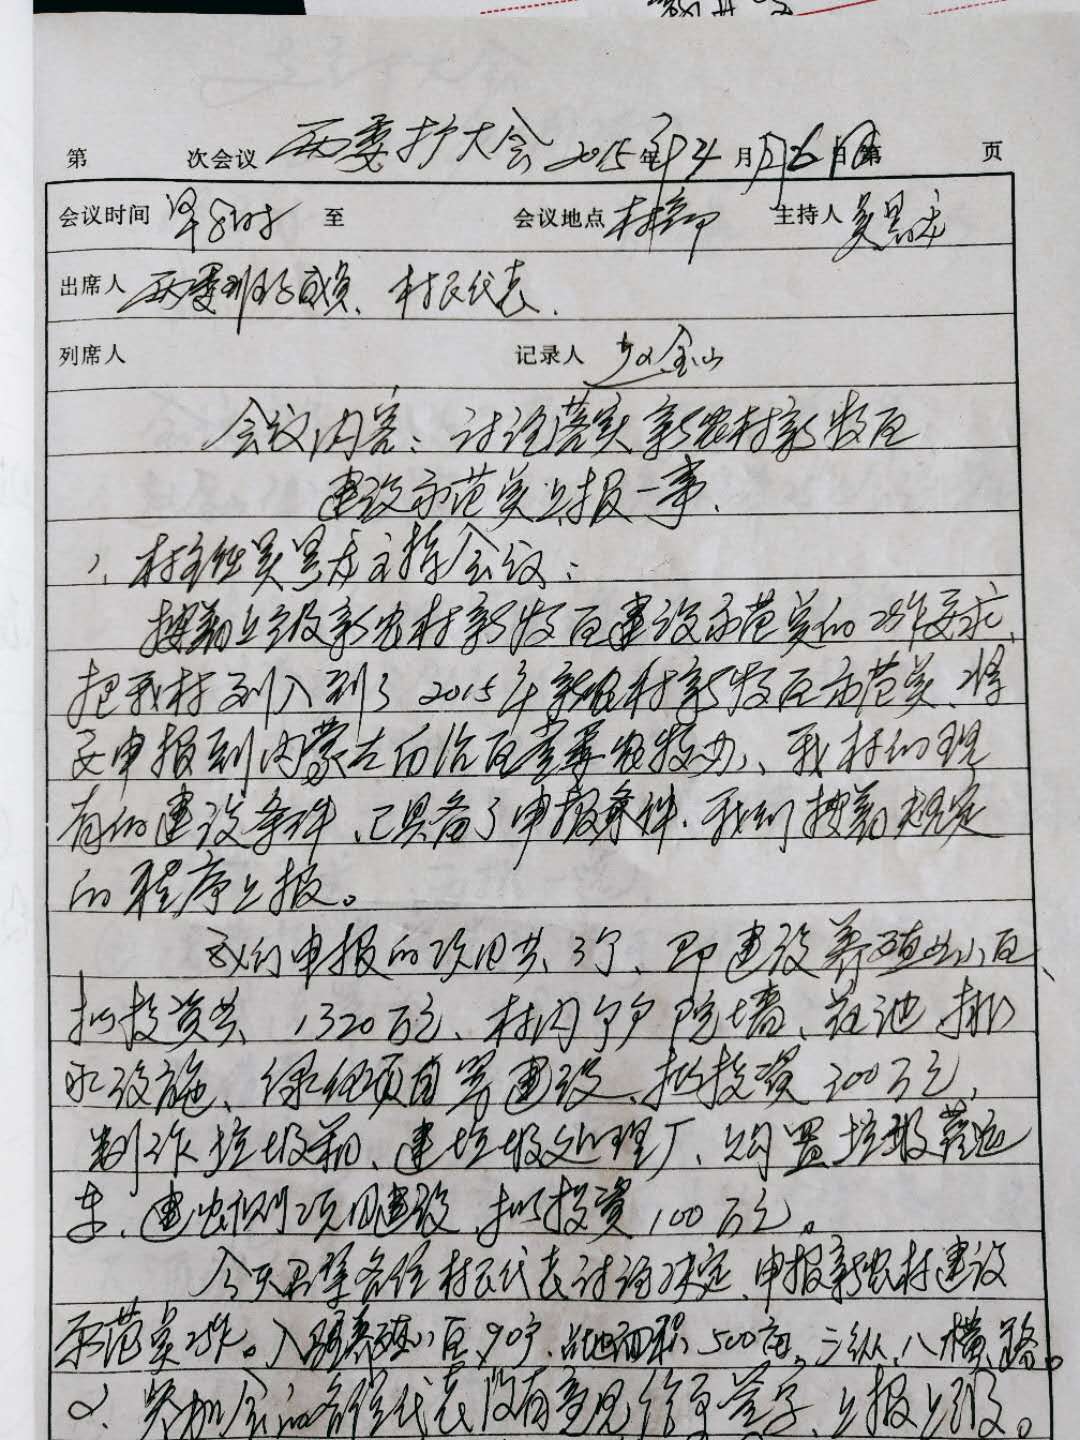 第 次会议 两委扩大会 2015年4月6日 第 页
会议时间 早8时 至 会议地点 村部 主持人 吴景龙
出席人 两委班子成员、村民代表.
列席人 记录人 赵金山
会议内容：讨论落实新农村新牧区
建设示范点上报一事.
1、村主任吴景龙主持会议：
按照上级新农村新牧区建设示范点的工作要求、
把我村列入到了2015年新农村新牧区示范点、将
要申报到内蒙古自治区农牧办、我村的现
有的建设条件、已具备了申报条件、我们按照规定
的程序上报。
我们申报的项目共3个、即建设养殖业小区、
拟投资共1320万元、村内户户院墙、花池、排
水设施、绿化项目等建设、拟投资300万元、
制作垃圾箱、建垃圾处理厂、购置垃圾运
车、建项目建设、拟投资100万元。
今天召集各位村民代表讨论决定、申报新农村建设
示范点工作。入驻养殖小区90户、占地面积500亩、三纵、八横、路。
2、参加会的各位代表没有意见给予签字、上报上级。